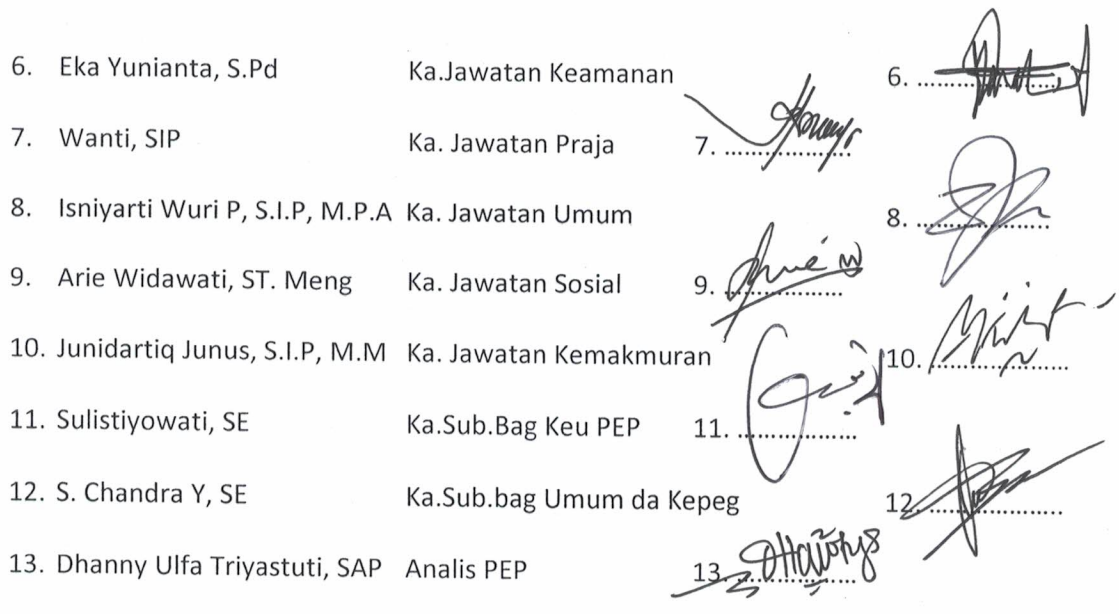 6. Eka Yunianta, S.Pd Ka.Jawatan Keamanan 6. ....................
7. Wanti, SIP Ka. Jawatan Praja 7. ..................
8. Isniyarti Wuri P, S.I.P, M.P.A Ka. Jawatan Umum 8. ......................
9. Arie Widawati, ST. Meng Ka. Jawatan Sosial 9. .................
10. Junidartiq Junus, S.I.P, M.M Ka. Jawatan Kemakmuran 10. ...................
11. Sulistiyowati, SE Ka.Sub.Bag Keu PEP 11. .................
12. S. Chandra Y, SE Ka.Sub.bag Umum da Kepeg 12. ....................
13. Dhanny Ulfa Triyastuti, SAP Analis PEP 13. .................